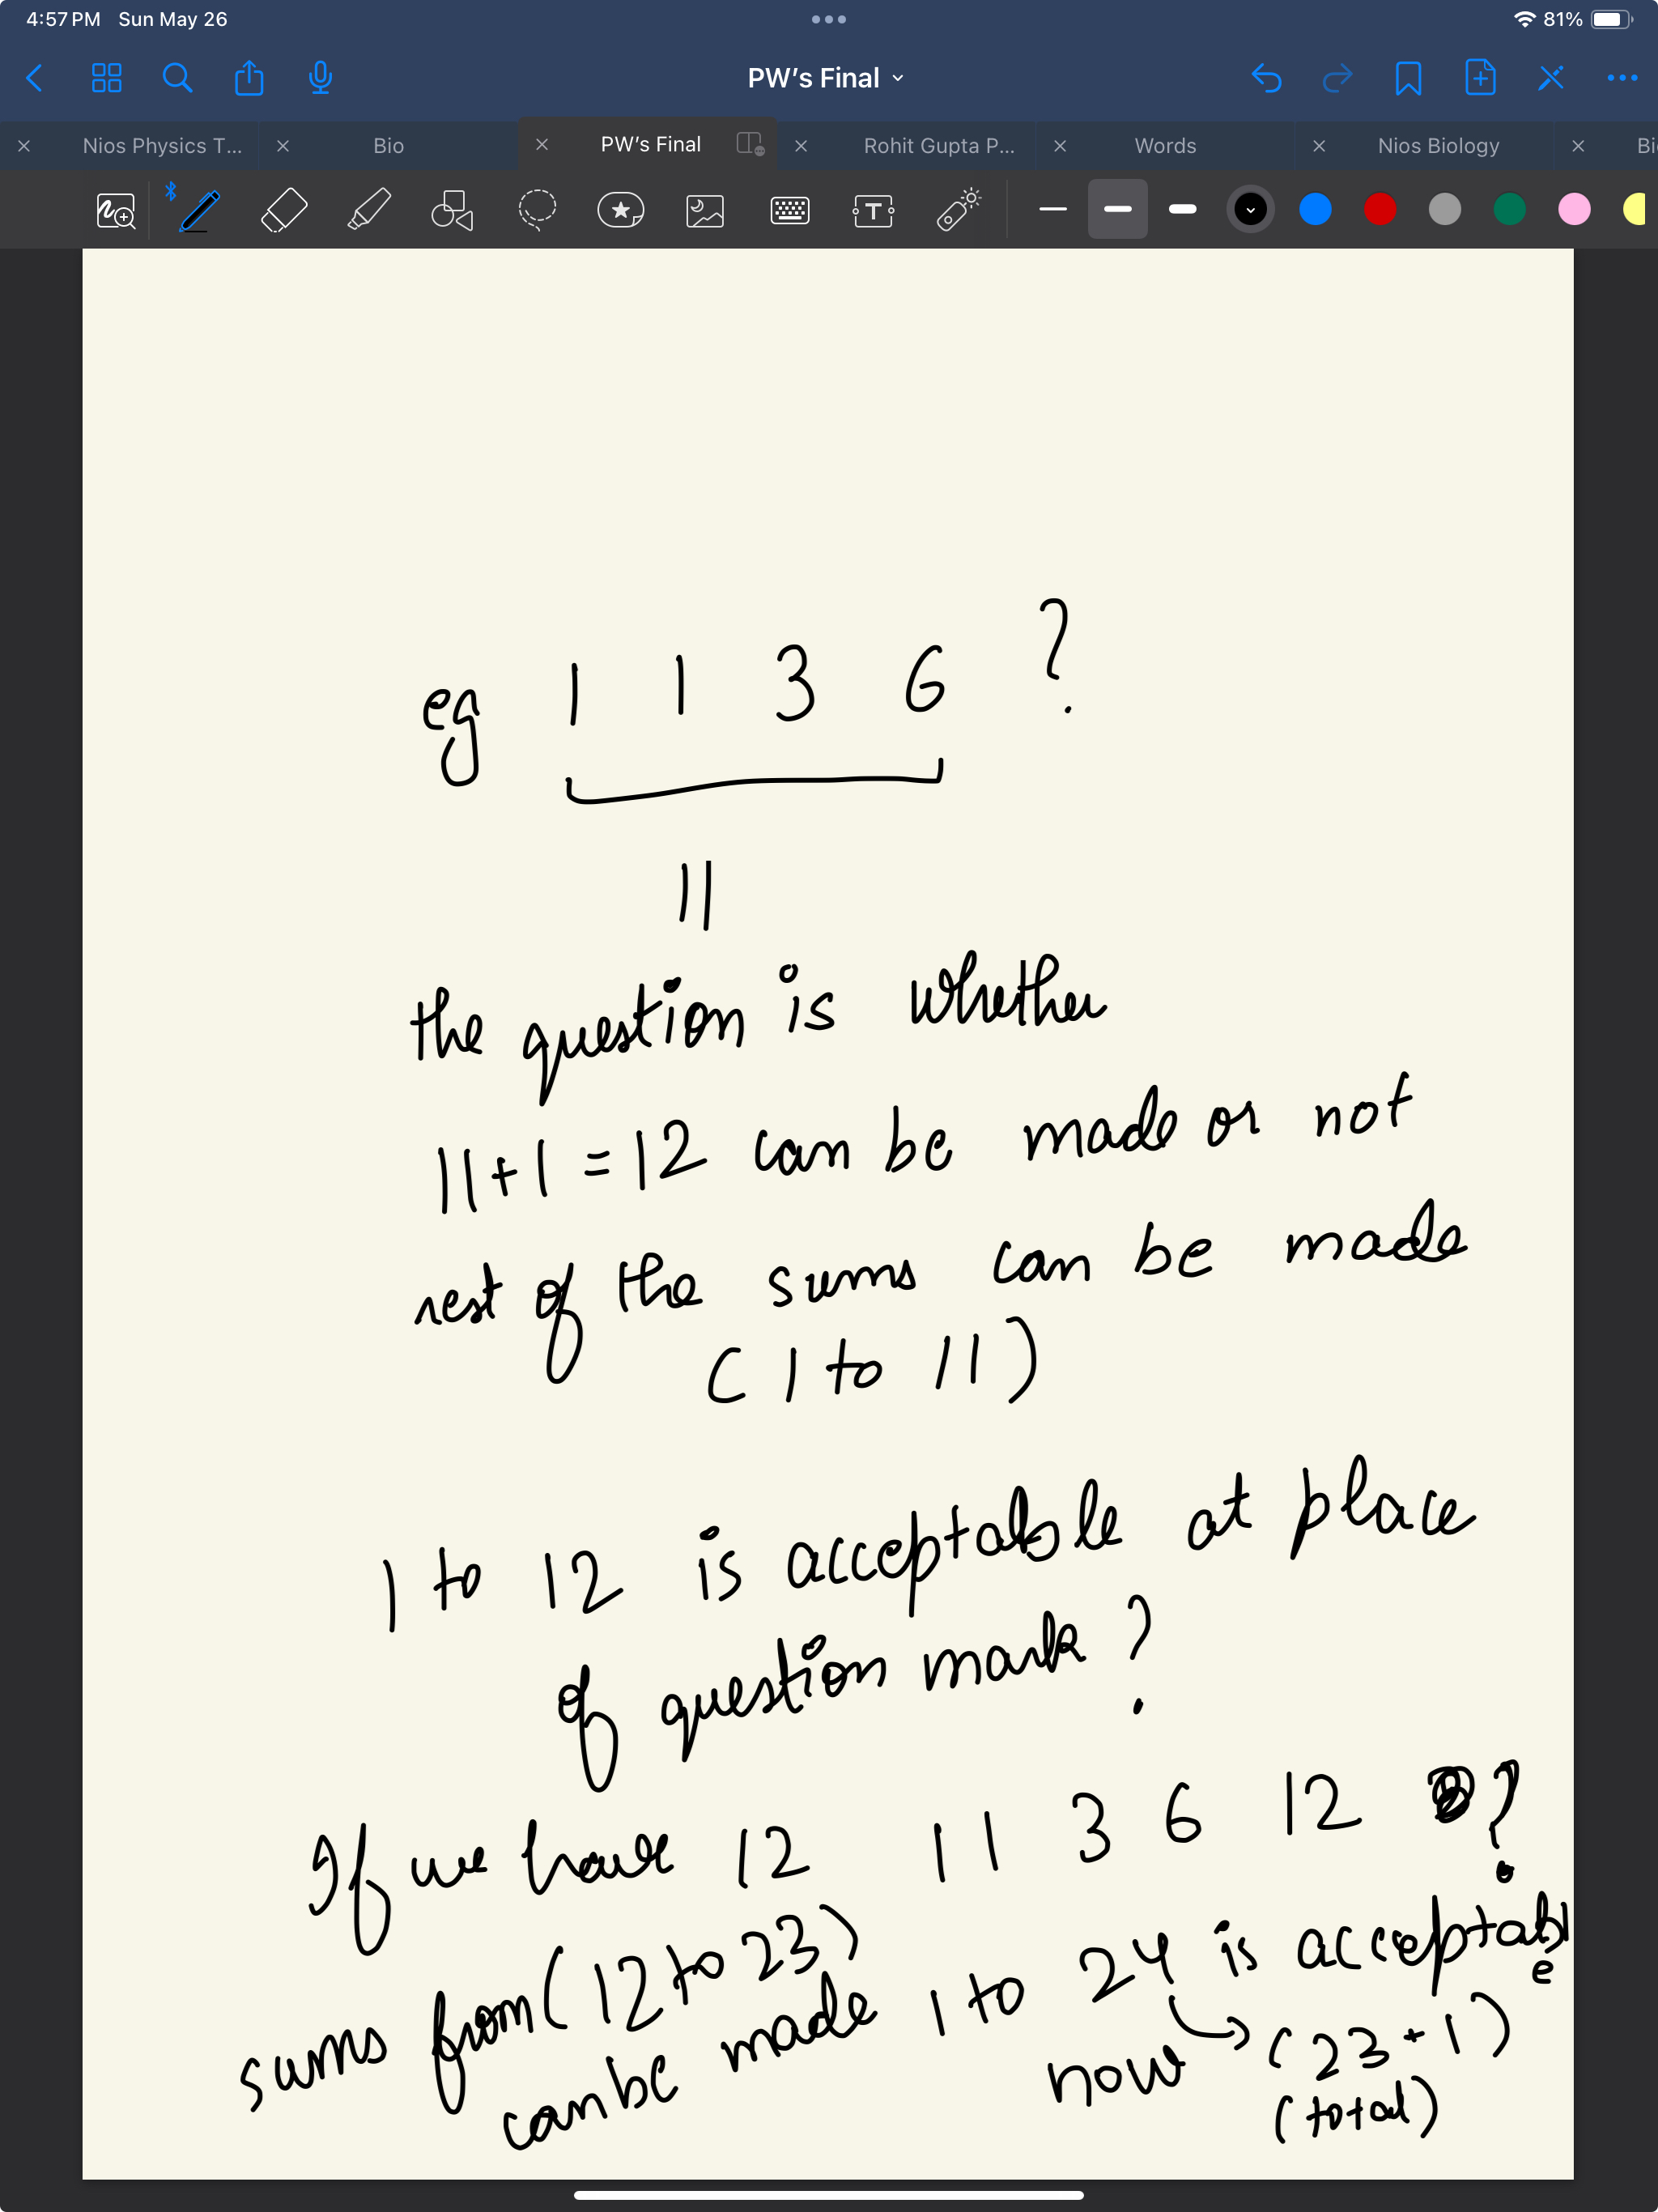 4:57 PM Sun May 26
81%
PW's Final
Nios Physics T... Bio PW's Final Rohit Gupta P... Words Nios Biology Bi
T
eg 1 1 3 6 ?
11
the question is whether
11+1 = 12 can be made or not
rest of the sums can be made
(1 to 11)
1 to 12 is acceptable at place
of question mark ?
If we have 12 1 1 3 6 12 ?
sums from (12 to 23)
can be made 1 to 24 is acceptable
now (23+1)
(total)